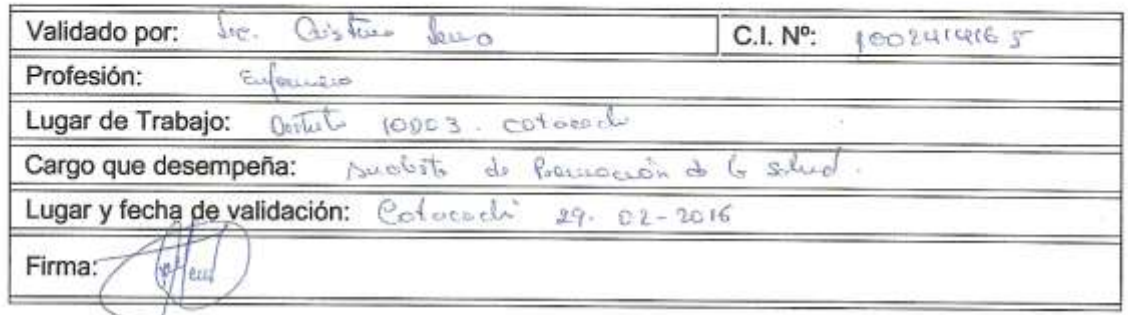 Validado por: Lic. C.I. Nº:
Profesión: Enfermero
Lugar de Trabajo: Distrito 10D03. Cotacachi
Cargo que desempeña: Analista de Promoción de la Salud.
Lugar y fecha de validación: Cotacachi 29-02-2016
Firma: